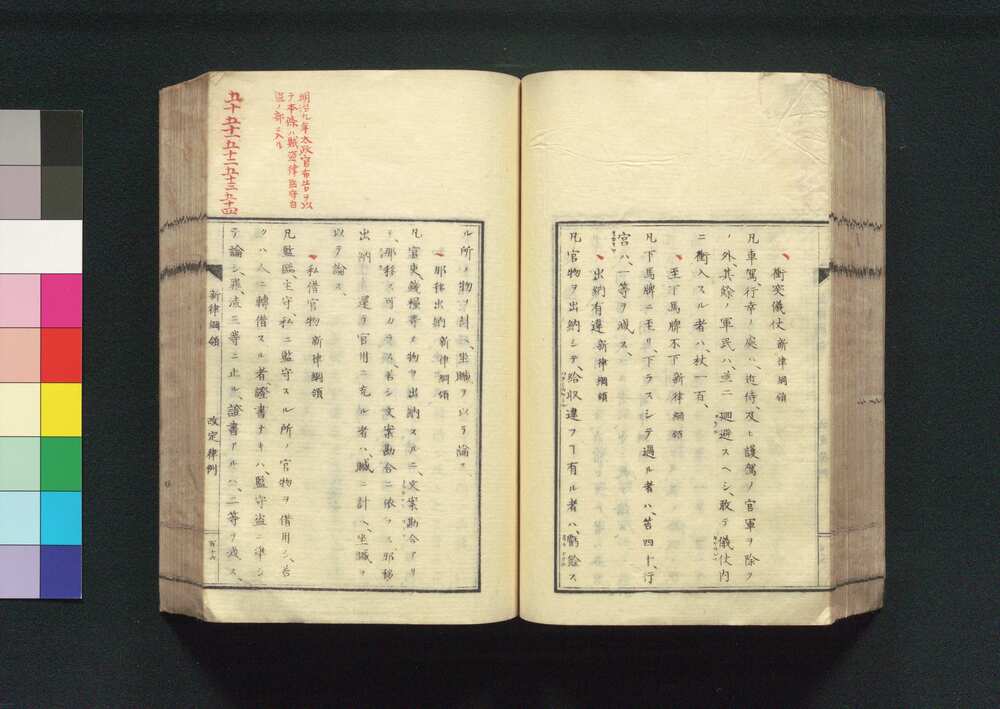 衝突儀仗 新律綱領
凡車駕、行幸ノ處ハ、近侍、及ヒ護駕ノ官軍ヲ除ク
ノ外、其餘ノ軍民ハ、並ニ廻避スヘシ、敢テ儀仗内
ニ衝入スル者ハ、杖一百、
至下馬牌不下 新律綱領
凡下馬牌ニ至リ、下ラスシテ過ル者ハ、笞四十、行
宮ハ、一等ヲ減ス、
出納有違 新律綱領
凡官物ヲ出納シテ、給収違フヿ有ル者ハ、虧餘ス
ル所ノ物ヲ計ヘ、坐贓ヲ以テ論ス、
那移出納 新律綱領
凡官吏、錢糧等ノ物ヲ出納スルニ、文案勘合アリ
テ、那移ス可カラス、若シ文案勘合ニ依ラス、那移
出納シ、還テ官用ニ充ル者ハ、贓ニ計ヘ、坐贓ヲ
以テ論ス、
私借官物 新律綱領
凡監臨、主守、私ニ監守スル所ノ官物ヲ借用シ、若
クハ人ニ轉借スル者、證書ナキハ、監守盗ニ準シ
テ論シ、罪流三等ニ止ル、證書アルハ、二等ヲ減ス、
新律綱領 改定律例
百十六
明治九年太政官布告ヲ以
テ本條ハ賊盗律監守自
盗ノ部ニ入ル
五十 五十一 五十二 五十三 五十四